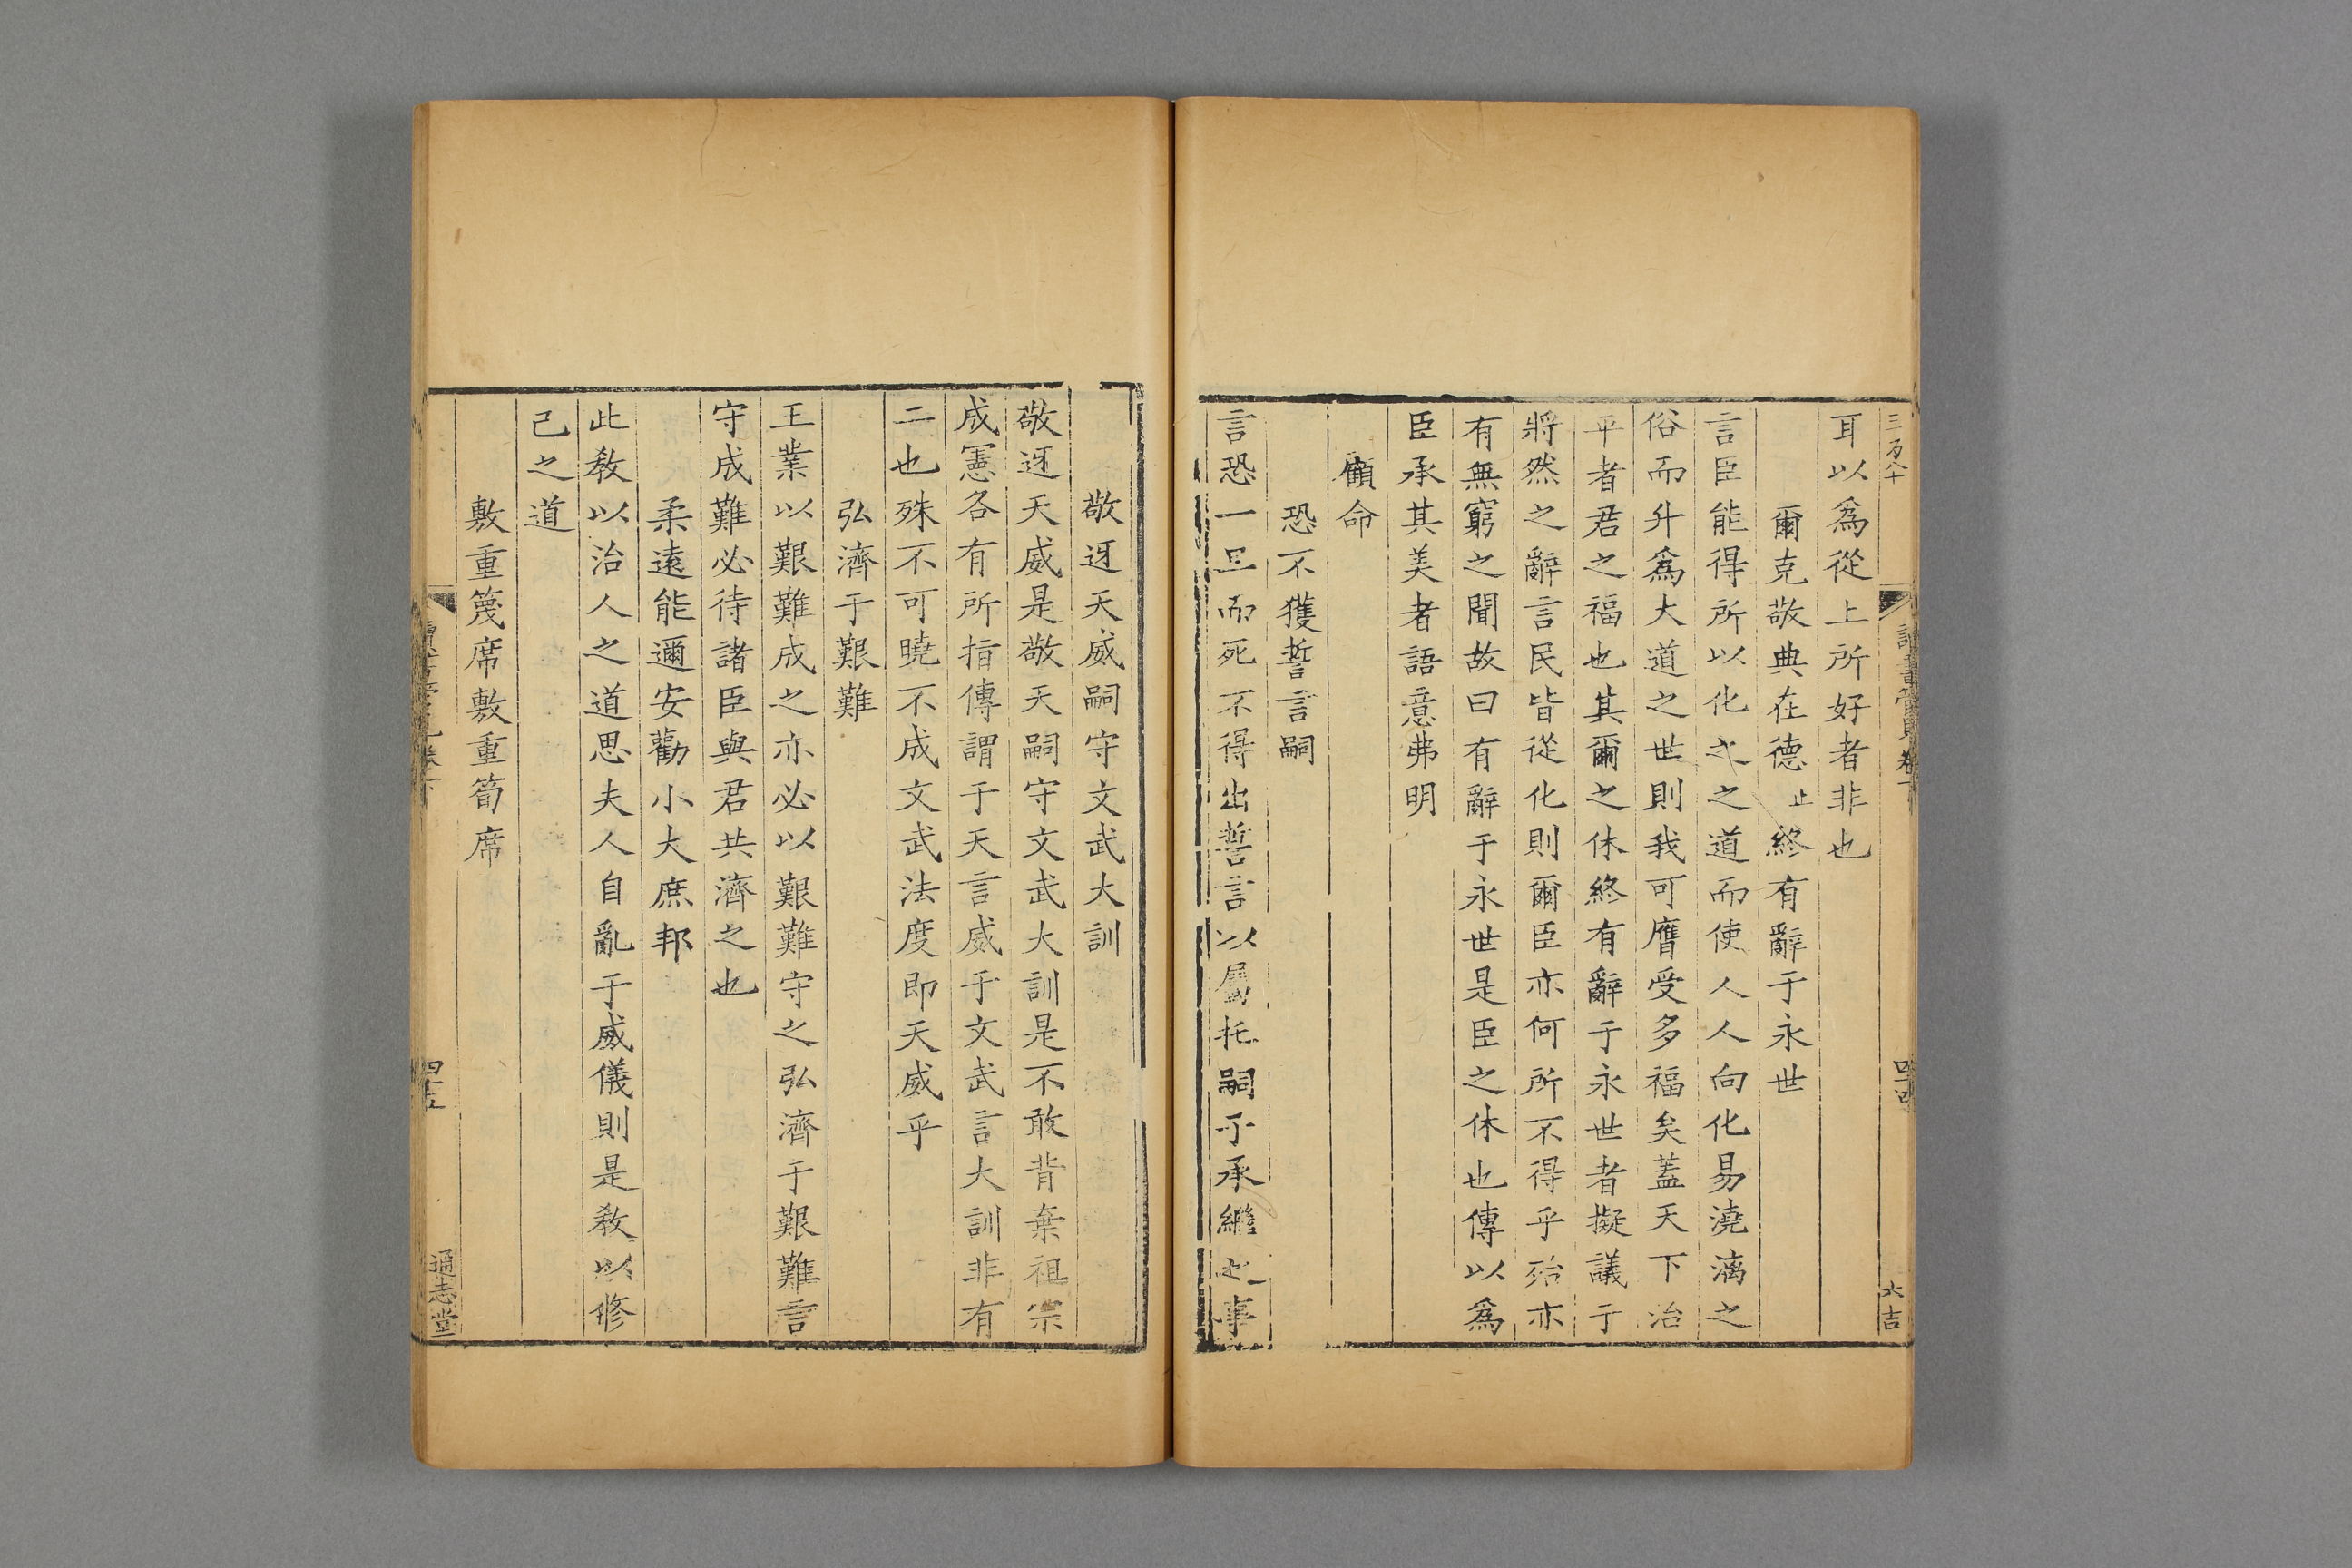 三百八十
讀書管見卷下
四十四
六吉
耳以爲從上所好者非也
爾克敬典在德止終有辭于永世
言臣能得所以化之之道而使人人向化易澆漓之
俗而升爲大道之世則我可膺受多福矣蓋天下治
平者君之福也其爾之休終有辭于永世者擬議于
將然之辭言民皆從化則爾臣亦何所不得乎殆亦
有無窮之聞故曰有辭于永世是臣之休也傳以爲
臣承其美者語意弗明
顧命
恐不獲誓言嗣
言恐一旦而死不得出誓言以屬托嗣子承繼之事
敬迓天威嗣守文武大訓
敬迓天威是敬天嗣守文武大訓是不敢背棄祖宗
成憲各有所指傳謂于天言威于文武言大訓非有
二也殊不可曉不成文武法度即天威乎
弘濟于艱難
王業以艱難成之亦必以艱難守之弘濟于艱難言
守成難必待諸臣與君共濟之也
柔遠能邇安勸小大庶邦
此敎以治人之道思夫人自亂于威儀則是敎以修
己之道
敷重篾席敷重筍席
四十五
通志堂